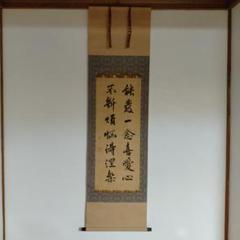 能發一念喜愛心
不斷煩惱得涅槃